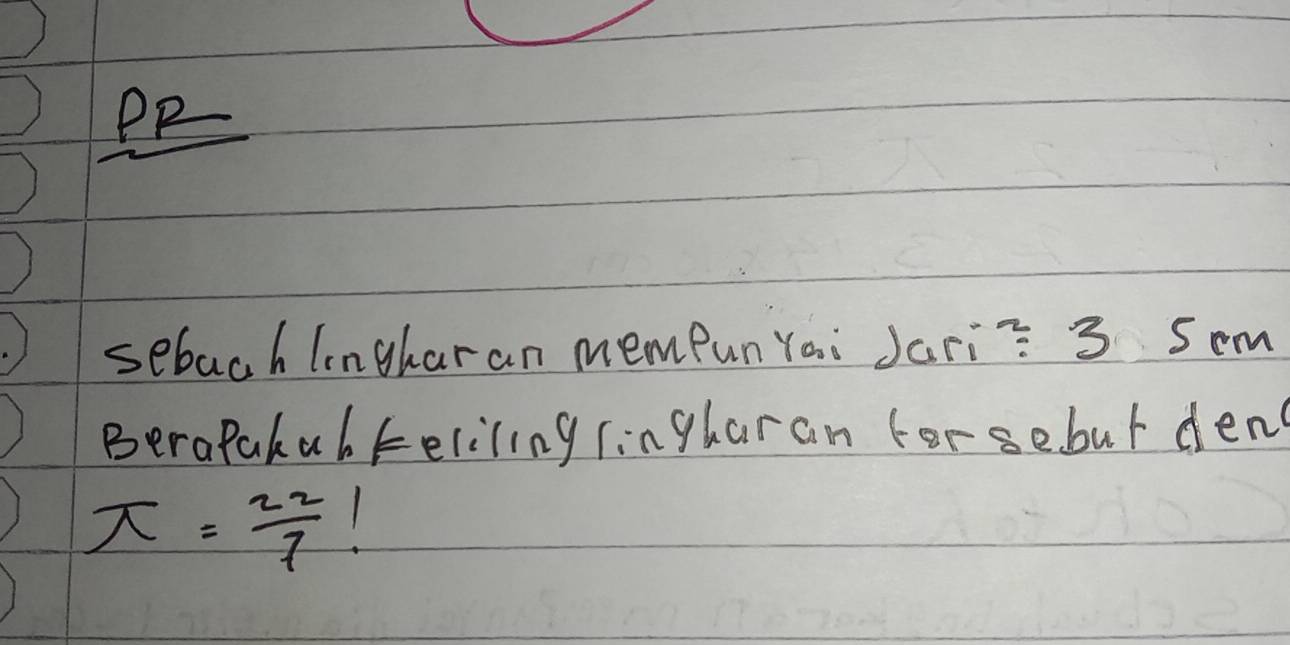 PR
Sebuah lingkaran mempunyai Jari² = 3 5 cm
Berapakah keliling lingkaran tersebut den
π = 22/7 !